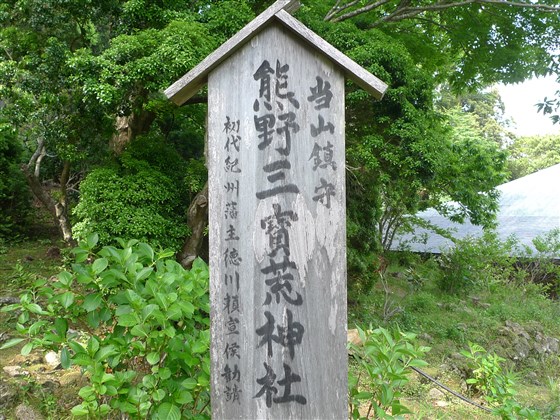 当山鎮守
熊野三寳荒神社
初代紀州藩主徳川頼宣侯勧請